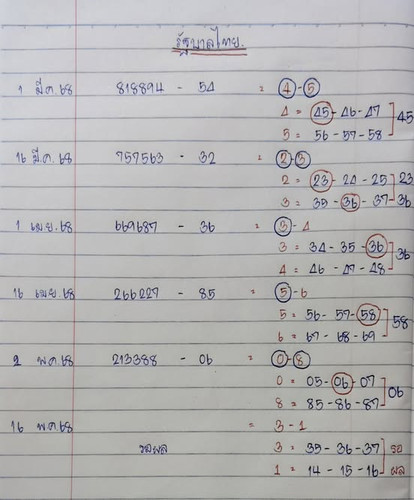 รัฐบาลไทย.
1 มีค.68 818894 - 54 = 4-5
4 = 45-46-47 ] 45
5 = 56-57-58
16 มีค.68 757563 - 32 = 2-3
2 = 23-24-25 ] 23
3 = 35-36-37 36
1 เมย.68 669687 - 36 = 3-4
3 = 34-35-36 ] 36
4 = 46-47-48
16 เมย68 266227 - 85 = 5-6
5 = 56-57-58 ] 58
6 = 67-68-69
2 พค68 213388 - 06 = 0-8
0 = 05-06-07 ] 06
8 = 85-86-87
16 พค68 = 3-1
รอผล 3 = 35-36-37 ] รอ
1 = 14-15-16 ผล